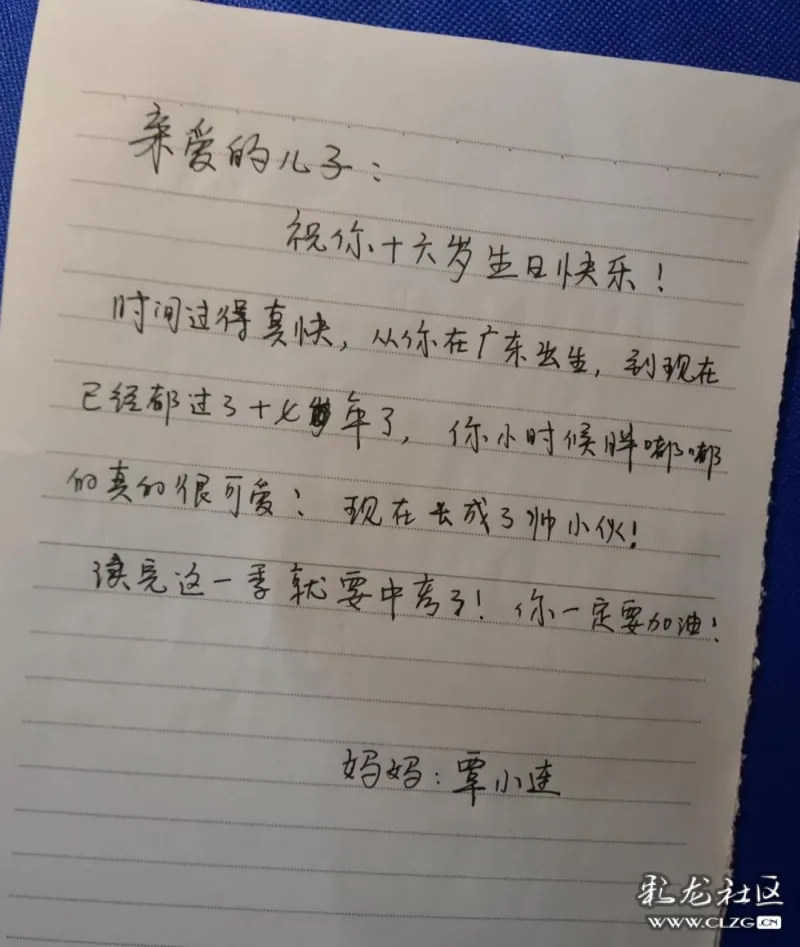 亲爱的儿子：
祝你十六岁生日快乐！
时间过得真快，从你在广东出生，到现在
已经都过了十七年了，你小时候胖嘟嘟
的真的很可爱！现在长成了帅小伙！
读完这一季就要中考了！你一定要加油！
妈妈：覃小连
彩龙社区
WWW.CLZG.CN